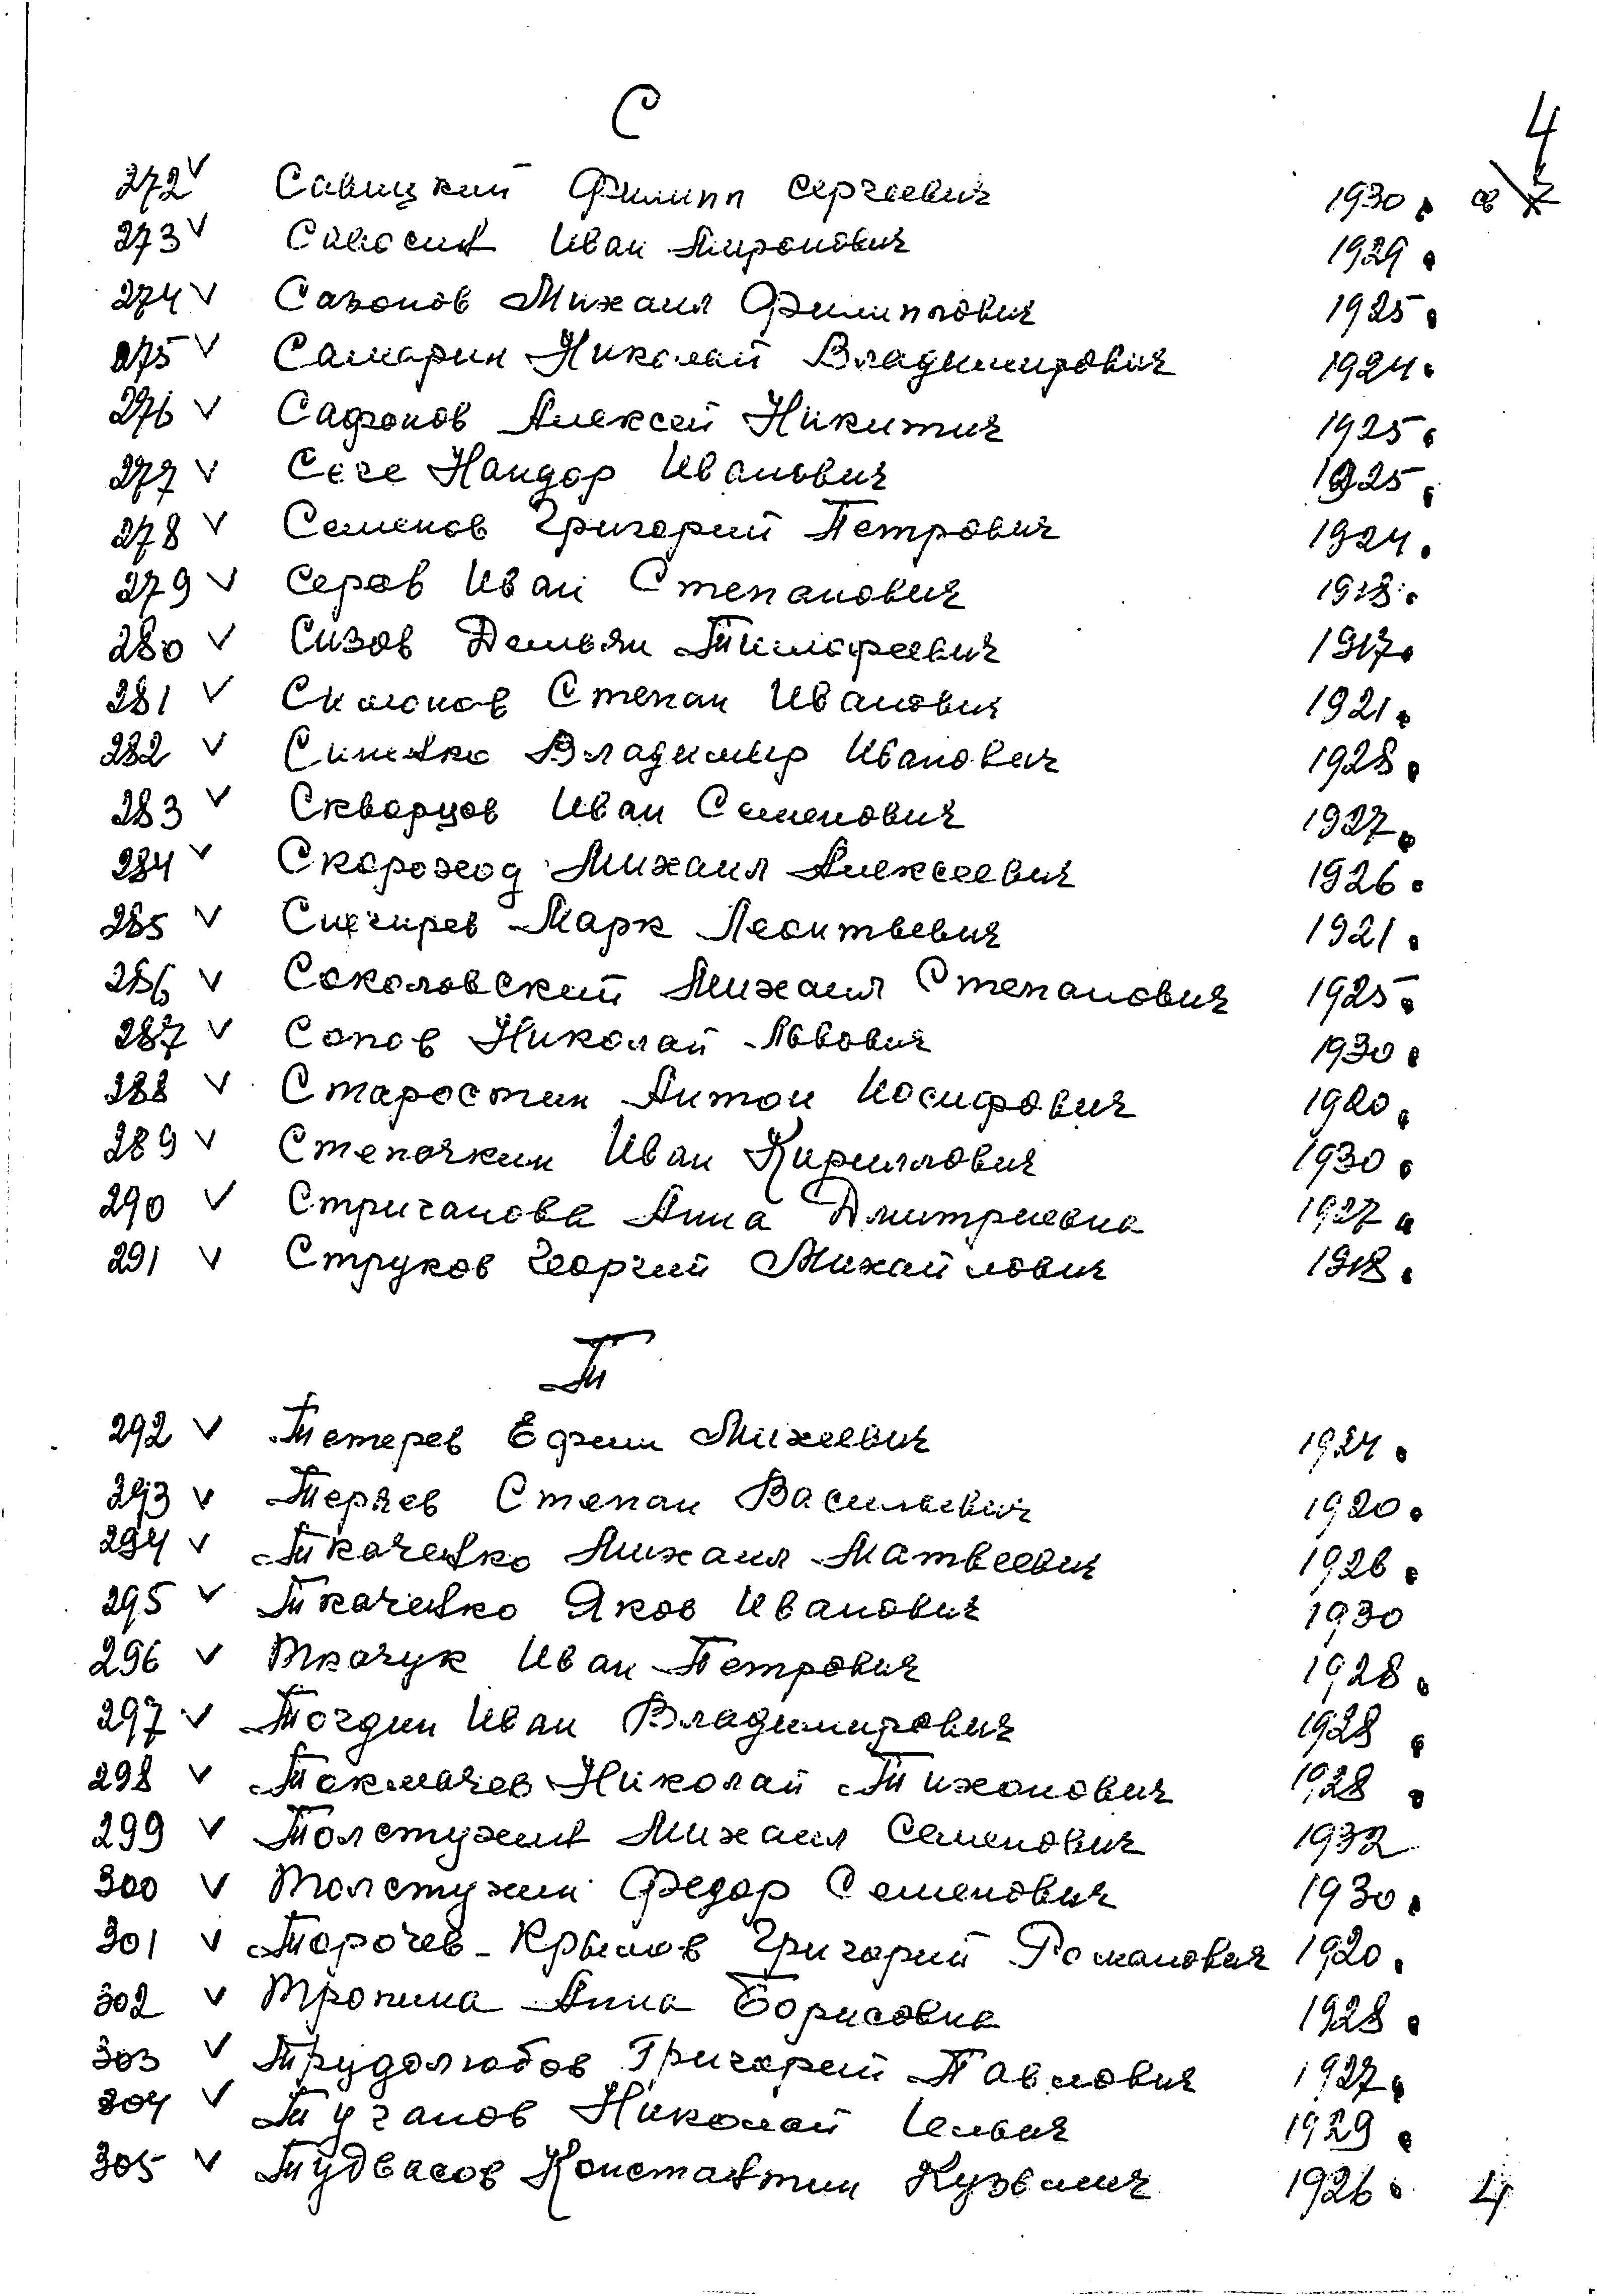 С
4
272 v Савицкий Филипп Сергеевич 1930.
273 v Савосин Иван Миронович 1929.
274 v Сазонов Михаил Филиппович 1925.
275 v Самарин Николай Владимирович 1924.
276 v Сафонов Алексей Никитич 1925.
277 v Сече Нандор Иванович 1925.
278 v Семенов Григорий Петрович 1924.
279 v Серов Иван Степанович 1918.
280 v Сизов Демьян Тимофеевич 1917.
281 v Степан Иванович 1921.
282 v Синенко Владимир Иванович 1928.
283 v Скворцов Иван Семенович 1927.
284 v Скороход Михаил Алексеевич 1926.
285 v Снегирев Марк Леонтьевич 1921.
286 v Соколовский Михаил Степанович 1925.
287 v Сопов Николай Львович 1930.
288 v Старостин Антон Иосифович 1920.
289 v Степочкин Иван Кириллович 1930.
290 v Стриганова Анна Дмитриевна 1927
291 v Струков Георгий Михайлович 1918.
Т
292 v Тетерев Ефим Михеевич 1924.
293 v Теряев Степан Васильевич 1920.
294 v Ткаченко Михаил Матвеевич 1926.
295 v Ткаченко Яков Иванович 1930
296 v Ткачук Иван Петрович 1928.
297 v Тогдин Иван Владимирович 1928.
298 v Токмачев Николай Тихонович 1928.
299 v Толстухин Михаил Семенович 1932
300 v Толстухин Федор Семенович 1930.
301 v Торочев-Крымов Григорий Романович 1920.
302 v Тропина Анна Борисовна 1928.
303 v Трудолюбов Григорий Павлович 1927.
304 v Туганов Николай Ильич 1929.
305 v Тудвасов Константин Кузьмич 1926. 4